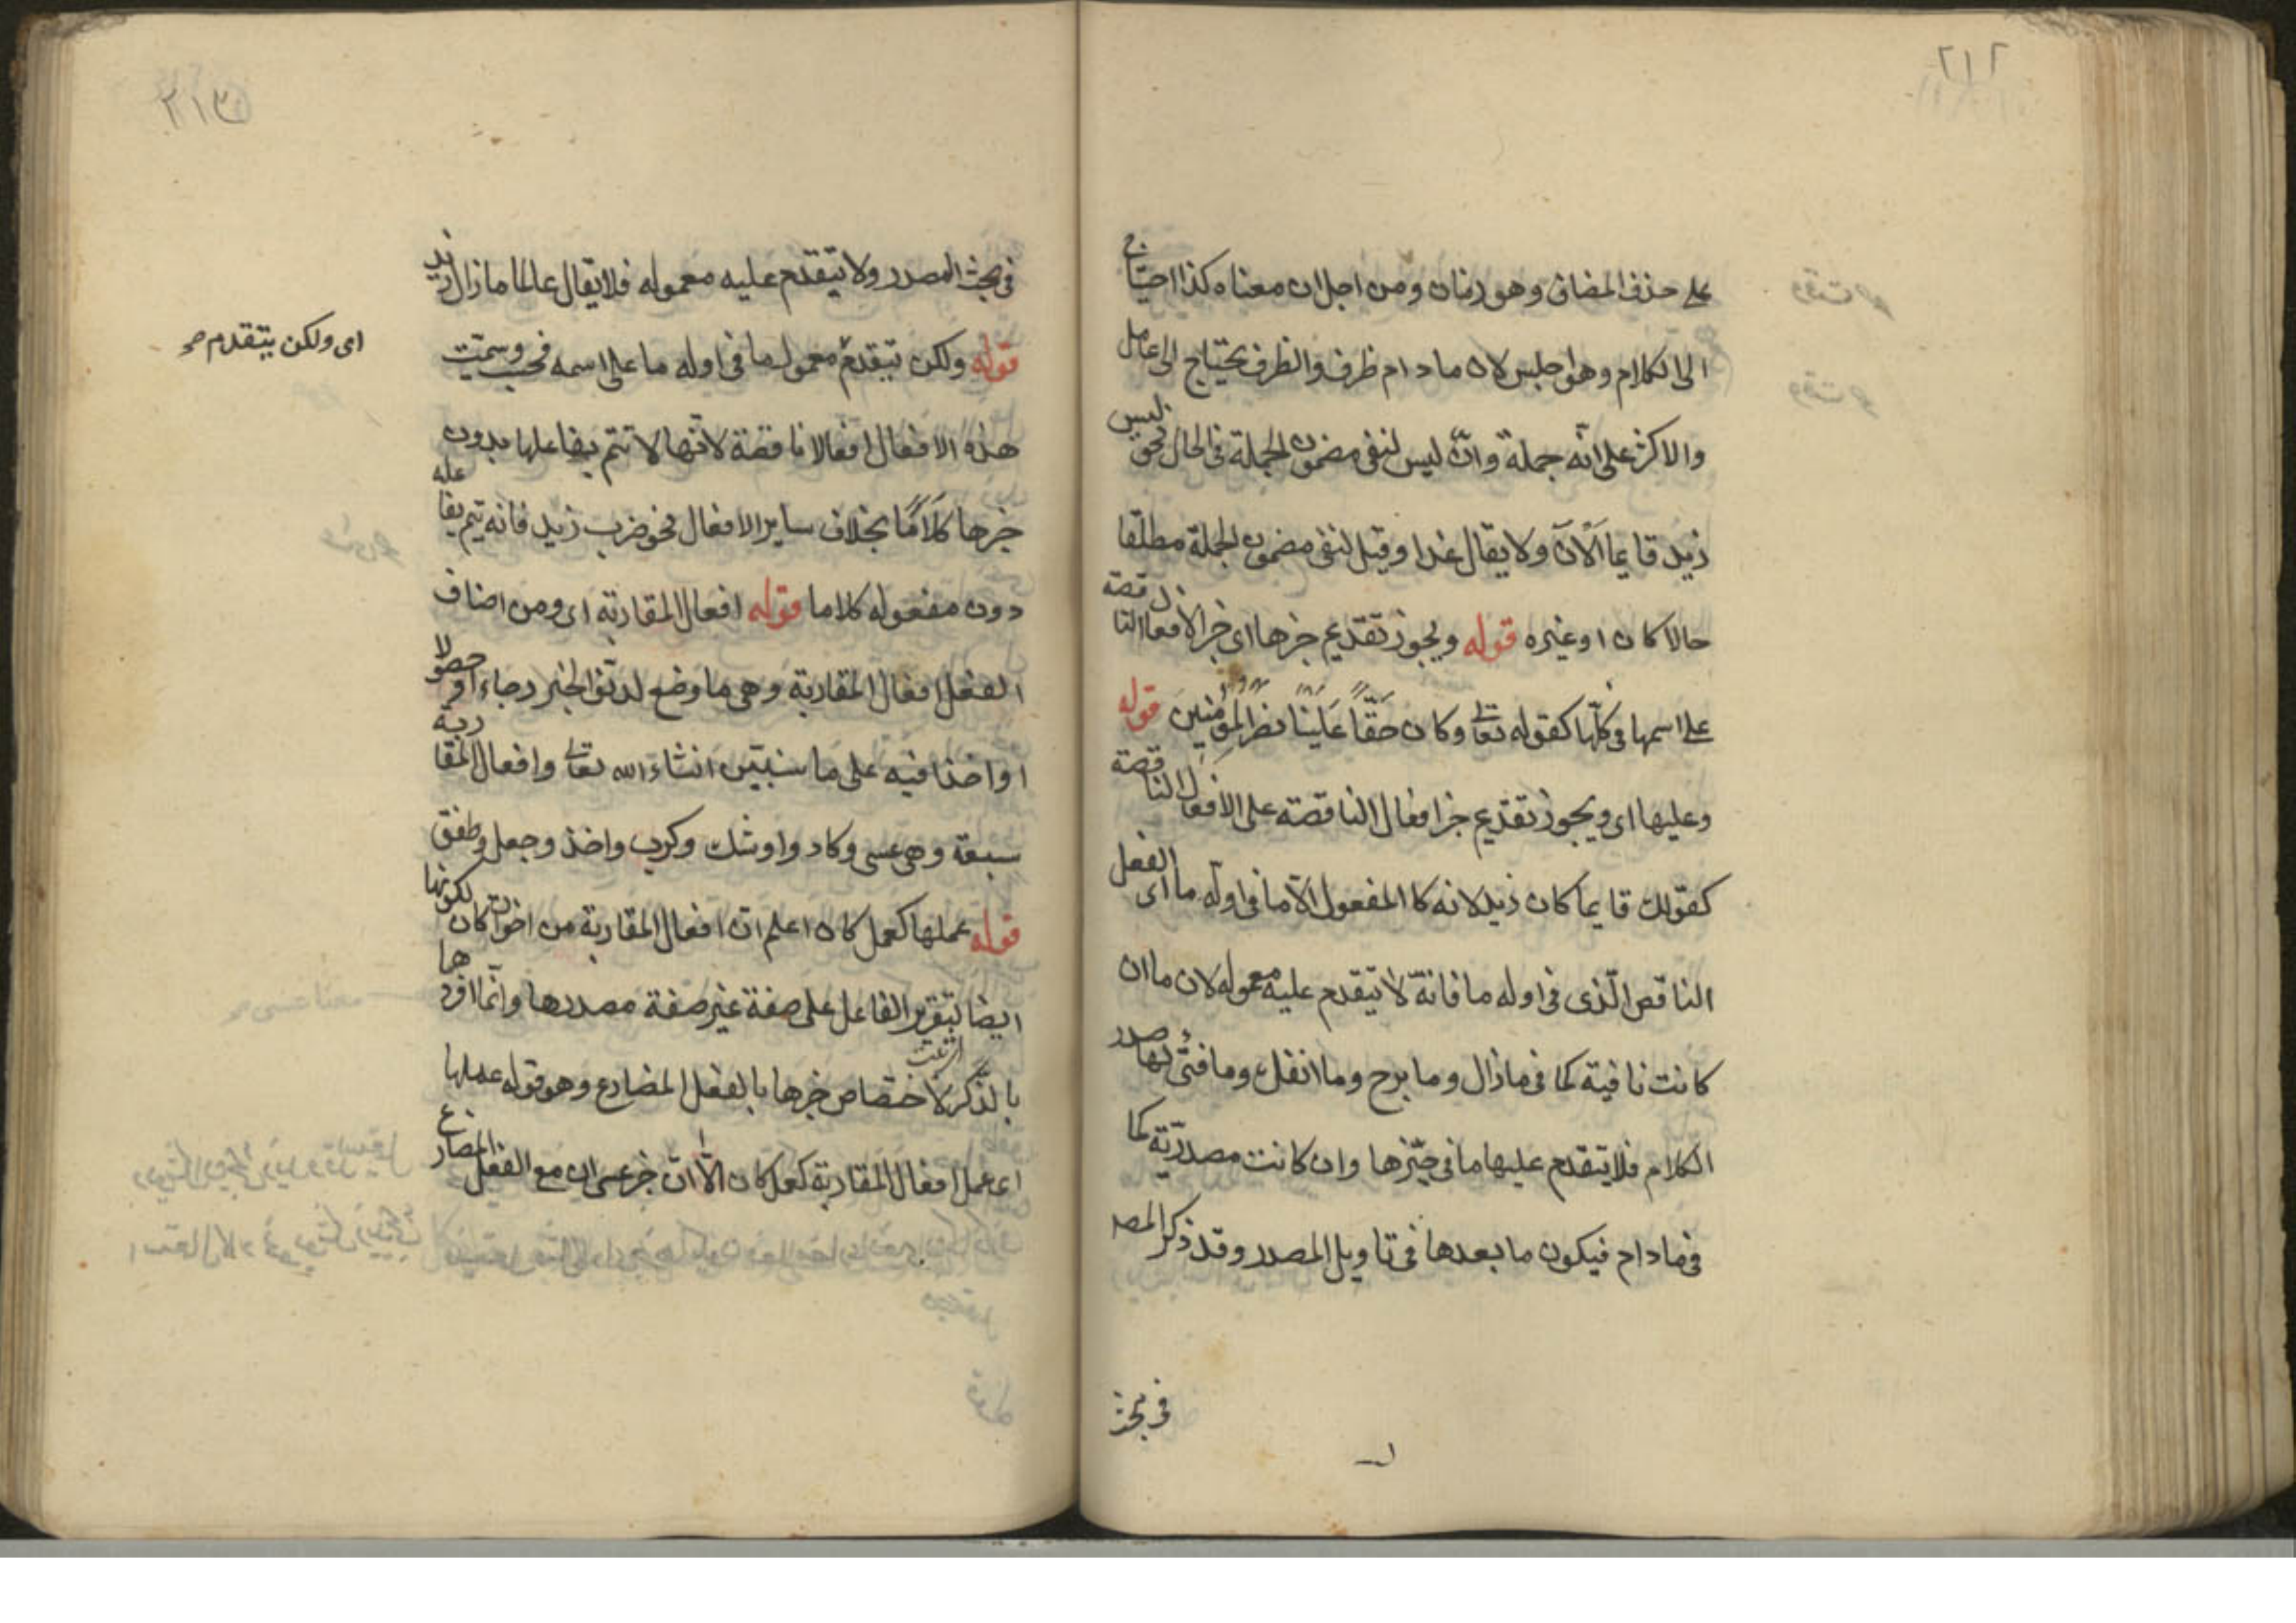 ٢١٢
على حذف المضاف وهو زمان ومن اجل ان معناه كذا احتياج
الى الكلام وهو اجلس لان مادام ظرف والظرف يحتاج الى عامل
والاكثر على انّه جملة وانّ ليس لنفى مضمون الجملة فى الحال نحو ليس
زيد قايما اَلْآنَ ولا يقال غدا وقيل لنفى مضمون الجملة مطلقا
حالا كان او غيره قوله ويجوز تقديم خبرها اى خبر الافعال الناقصة
على اسمها فى كلّها كقوله تعالى وكان حَقًّا عَلَيْنَا نصر المؤمنينَ قوله
وعليها اى ويجوز تقديم خبر افعال الناقصة على الافعال الناقصة
كقولك قايما كان زيد لانه كا المفعول الّا ما فى اوله ما اى الفعل
الناقص الّذى فى اوله ما فانّه لا يتقدم عليه معموله لان ما ان
كانت نافية كما فى مازال وما برح وما انفك وما فتئ لها صدر
الكلام فلا يتقدم عليها ما فى حيّزها وان كانت مصدريّة كما
فى مادام فيكون ما بعدها فى تاويل المصدر وقد ذكر المصـ
فى بحث
٢١٣
فى بحث المصدر ولا يتقدم عليه معموله فلا يقال عالما مازال زيد
قوله ولكن يتقدم معمول ما فى اوله ما على اسمه فحسب وسمّيت
اى ولكن يتقدم صح
هذه الافعال افعالا ناقصة لانّها لا تتم بفاعلها بدون
خبرها كلَامًا بخلاف ساير الافعال نحو ضرب زيد فانه يتم بفاعله
دون مفعوله كلاما قوله افعال المقاربة اى ومن اصناف
الفعل افعال المقاربة وهى ما وضع لدنوّ الخبر رجاء او حصولا
او اخذا فيه على ما سنبيّن انشاء الله تعالى وافعال المقاربة
سبعة وهى عسى وكاد واوشك وكرب واخذ وجعل وطفق
قوله عملها كعمل كان اعلم ان افعال المقاربة من اخوات كان لكونها
ايضا لتقرير الفاعل على صفة غير صفة مصدرها وانّما افردها
بالذّكر لاختصاص خبرها بالفعل المضارع وهو قوله عملها
اى عمل افعال المقاربة كعمل كان الّا انّ خبر عسى ان مع الفعل المضارع